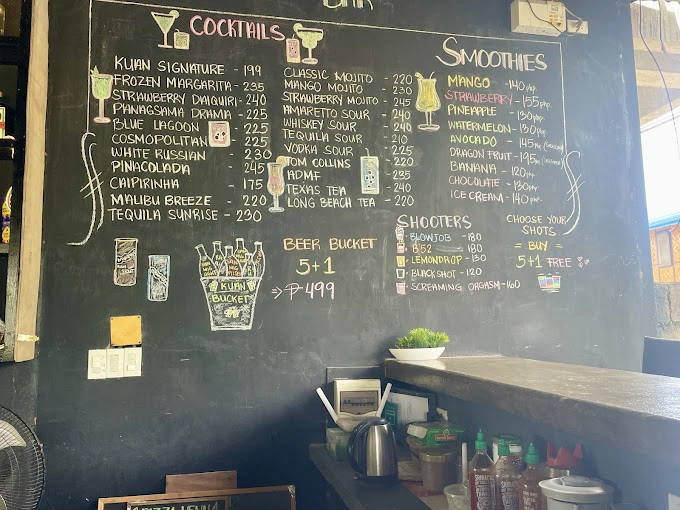 BAR
COCKTAILS
KUAN SIGNATURE - 199
FROZEN MARGARITA - 235
STRAWBERRY DAIQUIRI - 240
PANAGSAMA DRAMA - 225
BLUE LAGOON - 225
COSMOPOLITAN 225
WHITE RUSSIAN - 230
PINACOLADA 245
CAIPIRINHA - 175
MALIBU BREEZE - 220
TEQUILA SUNRISE - 230
CLASSIC MOJITO - 220
MANGO MOJITO - 230
STRAWBERRY MOJITO - 245
AMARETTO SOUR - 240
WHISKEY SOUR - 240
TEQUILA SOUR - 210
VODKA SOUR - 225
TOM COLLINS - 220
ADMF - 235
TEXAS TEA - 240
LONG BEACH TEA - 220
SMOOTHIES
MANGO - 140 php.
STRAWBERRY - 155 php.
PINEAPPLE - 130 php.
WATERMELON - 130 php.
AVOCADO - 145 php
DRAGON FRUIT - 195 php
BANANA - 120 php
CHOCOLATE - 130 php
ICE CREAM - 140 php.
SHOOTERS
BLOWJOB - 180
B'52 - 180
LEMONDROP - 130
BLACKSHOT - 120
SCREAMING ORGASM - 160
CHOOSE YOUR
SHOTS
= BUY =
5+1 FREE
BEER BUCKET
5+1
499
KUAN
BUCKET